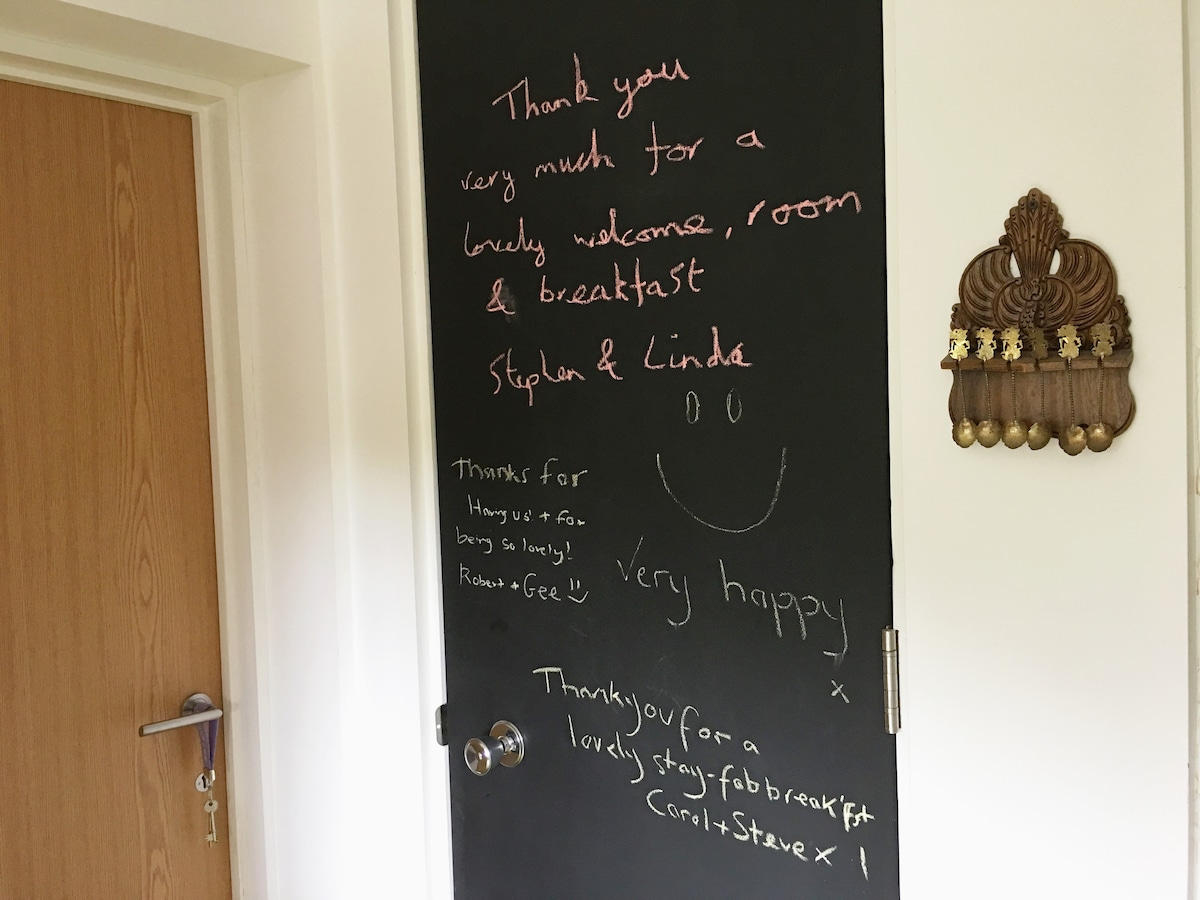 Thank you
very much for a
lovely welcome, room
& breakfast
Stephen & Linda
Thanks for
Having us! + for
being so lovely!
Robert + Gee
Very happy
x
Thankyou for a
lovely stay-fab break'fst
Carol+Steve x !